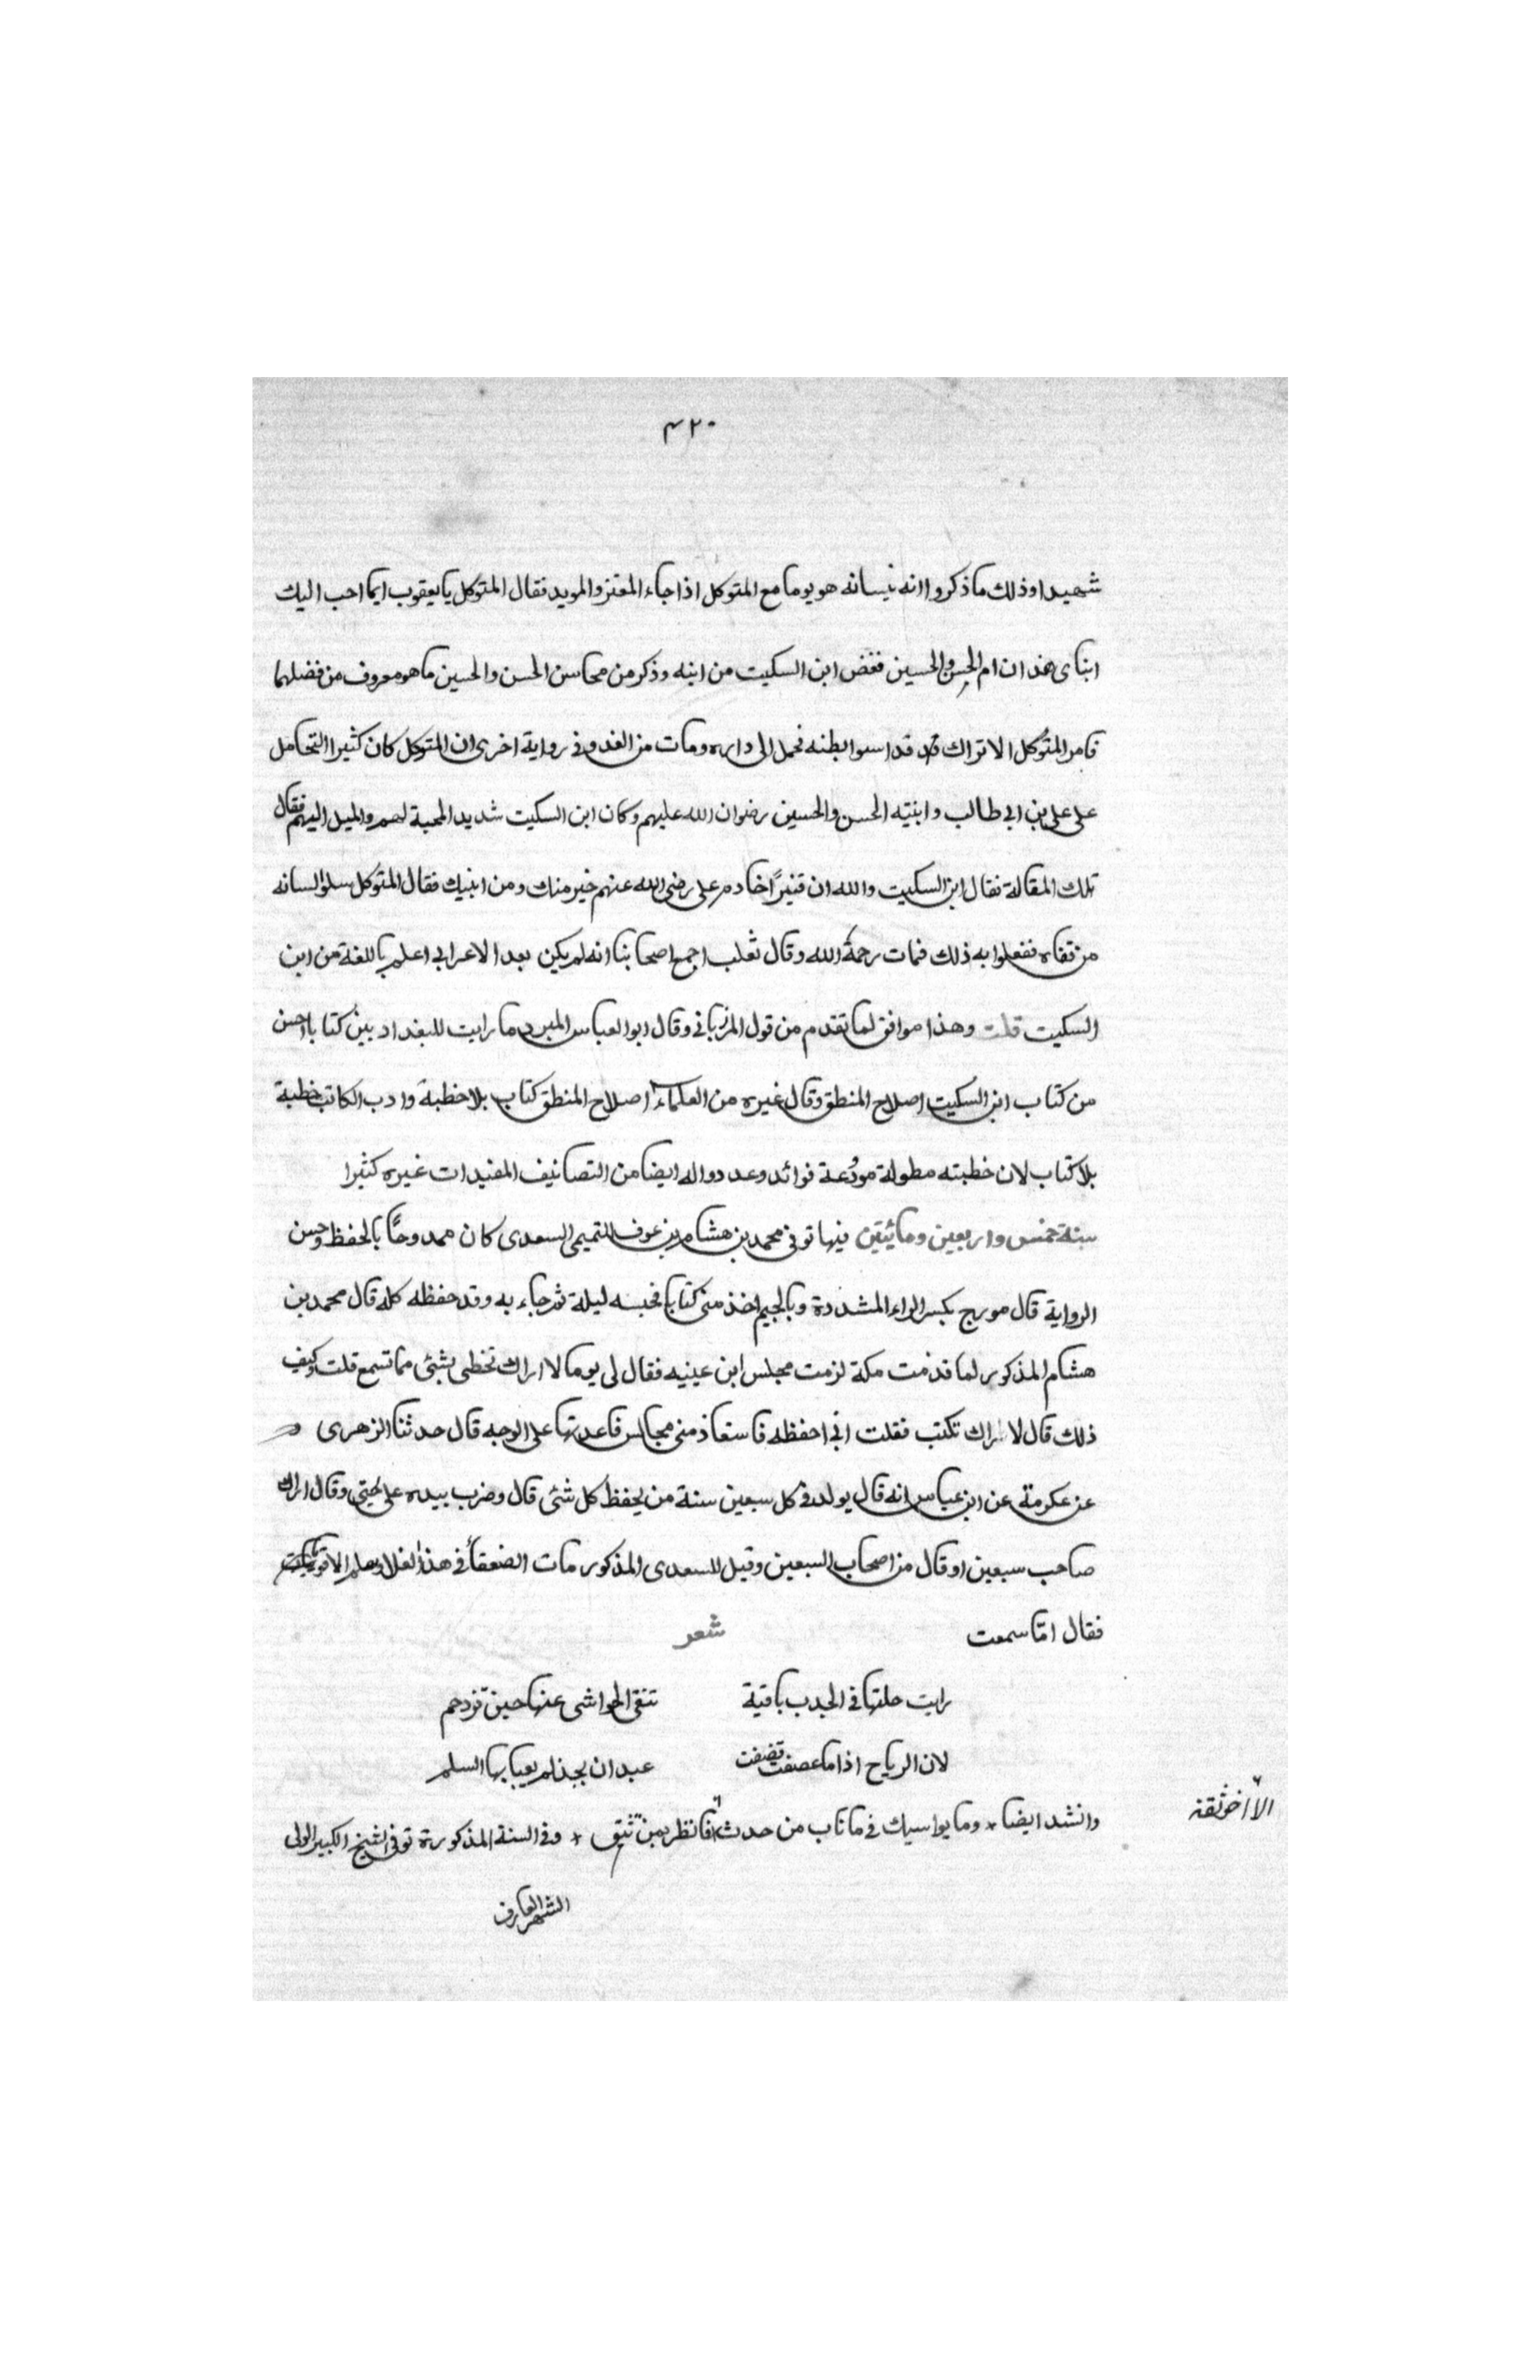 ٤٢٠
شهيدا وذلك ما ذكروا انه بيسانه هو يوما مع المتوكل اذا جاء المعتز والمويد فقال المتوكل يا يعقوب ايما احب اليك
ابناى هذان ام الحسن والحسين فغض ابن السكيت من ابنه وذكر من محاسن الحسن والحسين ما هو معروف من فضلهما
فامر المتوكل الاتراك قد قداسوا بطنه فحمل الى داره ومات من الغد وفى رواية اخرى ان المتوكل كان كثيرا التحامل
على على بن ابى طالب وابنيه الحسن والحسين رضوان الله عليهم وكان ابن السكيت شديد المحبة لهم والميل اليهم فقال
تلك المقالة فقال ابن السكيت والله ان قنبرًا خادم على رضى الله عنهم خير منك ومن ابنيك فقال المتوكل سلوا لسانه
من قفاه ففعلوا به ذلك فمات رحمة الله وقال ثعلب اجمع اصحابنا انه لم يكن بعد الاعرابى اعلم باللغة من ابن
السكيت قلت وهذا موافق لما تقدم من قول المرزبانى وقال ابو العباس المبرد ما رايت للبغداديين كتابا احسن
من كتاب ابن السكيت اصلاح المنطق وقال غيره من العلماء اصلاح المنطق كتاب بلا خطبة وادب الكاتب خطبة
بلا كتاب لان خطبته مطولة مودعة فوائد وعددوا له ايضا من التصانيف المفيدات غيره كثيرا
سنة خمس واربعين ومائيتين فيها توفى محمد بن هشام بن عوف التميمى السعدى كان ممدوحًا بالحفظ وحسن
الرواية قال مورج بكسر الراء المشددة وبالجيم اخذ منى كتابا فحبسه ليلة ثم جاء به وقد حفظه كله قال محمد بن
هشام المذكور لما قدمت مكة لزمت مجلس ابن عينيه فقال لى يوما لا اراك تخطى بشئ مما تسمع قلت وكيف
ذلك قال لا اراك تكتب فقلت انى احفظه فاستعاذ منى مجالس فاعدتها على الوجه قال حدثنا الزهرى
عن عكرمة عن ابن عباس انه قال يولد فى كل سبعين سنة من يحفظ كل شئ قال وضرب بيده على جنبى وقال اراك
صاحب سبعين او قال من اصحاب السبعين وقيل للسعدى المذكور مات الضعفأ فى هذا الغلا وسلم الاقويا
فقال اما سمعت شعر
رايت حلتها فى الجدب باقية تنفى الحواشى عنها حين تزدحم
لان الرياح اذا ما عصفت قصفت عيدان نجد لم يعبا بها السلم
وانشد ايضا * وما يواسيك فى ما ناب من حدث فانظر بمن تثق * وفى السنة المذكورة توفى الشيخ الكبير الولى
الا اخو ثقة
الشهير العارف